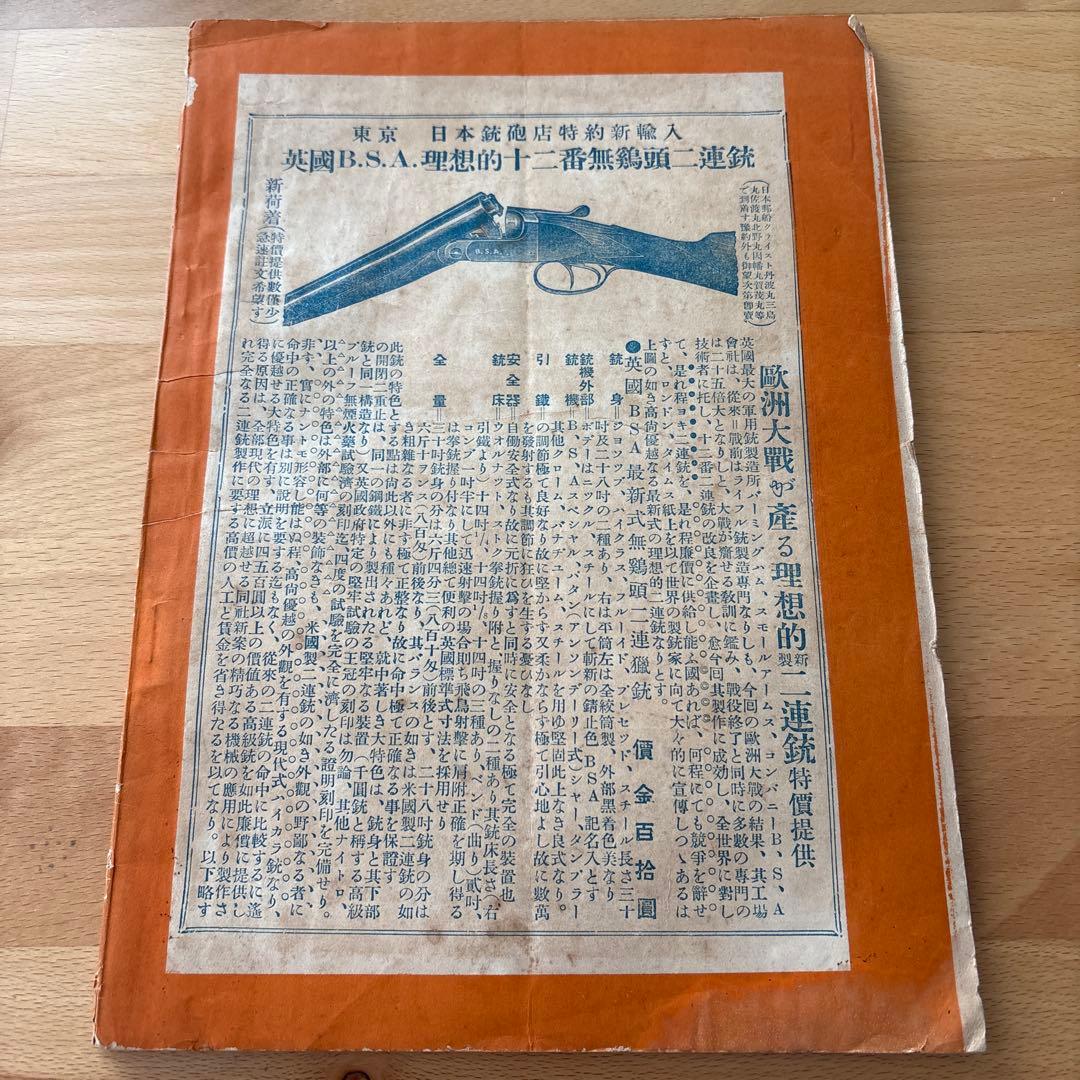 東京 日本銃砲店特約新輸入
英國B.S.A.理想的十二番無鷄頭二連銃
(日本郵船クライスト丹波丸三島
丸佐渡丸北野丸因幡丸賀茂丸等
B.S.A.
新荷着(特價提供數僅少
急速註文希望す)
歐洲大戰が產る理想的新製二連銃特價提供
英國最大の軍用銃製造所バーミングハム、スモールアームス、コンパニーB、S、A
會社は、從來=戰前はライフル銃製造專門なりしも、今回の歐洲大戰の結果、其工場
は二十五倍大となりしと、大戰が齎せる敎訓に鑑み、戰役終了と同時に多數の專門の
技術者に托し、十二番二連銃の改良を企畫し、愈々今回其製作に成効し、全世界に對し
て、是れ程ヨキ二連銃を、是れ程廉價に供給し能ふ國あれば、何程にても競爭を辭せ
すと、ロンドン、タイムス紙上を以て世界の製銃家に向て大々的に宣傳しつゝあるは
上圖の如き高尚優越なる最新式の理想的二連銃なりとす。
●英國BSA最新式無鷄頭二連獵銃 價金百拾圓
銃身=ジョツプ、パイクラス、フルーイド、プレセツド、スチール長さ三十
吋及二十八吋の二種あり、右は平筒左は全絞筒製、外部黑着色美なり
銃機外部=ボデーはニツクル、スチールにして斬新の錆止色、BSA記名入とす
銃機=B、S、Aスペシヤル、バタン(アンソンデーリー式)シヤー、タンブラー
其他クローム、バナヂユーム、スチールを用ゆ堅固此上なき良式なり。
引鐵=の調節極て良好なり故に堅からす又柔かならす極て引心地よし故に數萬
を發射するも其調節に狂ひを生する憂ひなし
安全器=自働安全式なり故に元折に爲すと同時に安全となる極て完全の裝置也
銃床=ウオルナツト、ストク拳銃握り附と、握りなしの二種あり其銃床長さ(右
コンブ一吋半にして迅速射擊の場合則ち飛鳥射擊に肩附正確を期し得る
は拳銃握り付なり其他總て便利の英國標準式寸法を採用せり
全量=三十吋銃身の分は六斤四分三(八百十匁)前後とす、二十八吋銃身の分は
六斤十ヲンス(八百匁)前後なり、其バランスの如きは米國製二連銃の如
き粗雜なる者に非す極て正整なり故に命中極て正確なる事を保證す
此銃の特色とする點は尚此以外にも種々あれど、就中著しき大特色は、銃身と其下部
の開閉二重止は、同一の鋼鐵により製出されたる堅牢なる裝置(千圓銃と稱する高級
銃と同一構造なり)又英國政府特定の堅牢試驗の王冠の刻印は勿論、其他ナイトロ、
プルーフ無煙火藥試驗濟の刻印迄、四度の試驗を完全に濟したる證明刻印を完備せり。
以上の外の特色は外部に何等の裝飾なきも、米國製二連銃の如き外觀の野鄙なる者に
非す、實にナントモ形容し能はぬ程、高尚優越の外觀を有する現代式ハイカラ銃なり、
命中の正確なる事は別に說明を要する迄もなく、從來の二連銃の命中に比較するに遙
に優越せる大特色を有す、立派に四五百圓以上の價値ある高級銃を如此廉價に提供し
得る原因は、全部現代の理想に超越せる同社新案の精巧なる機械の應用により製作さ
れ完全なる二連銃製作に要する高價の人工と賃金を省き得たるを以てなり。以下略す